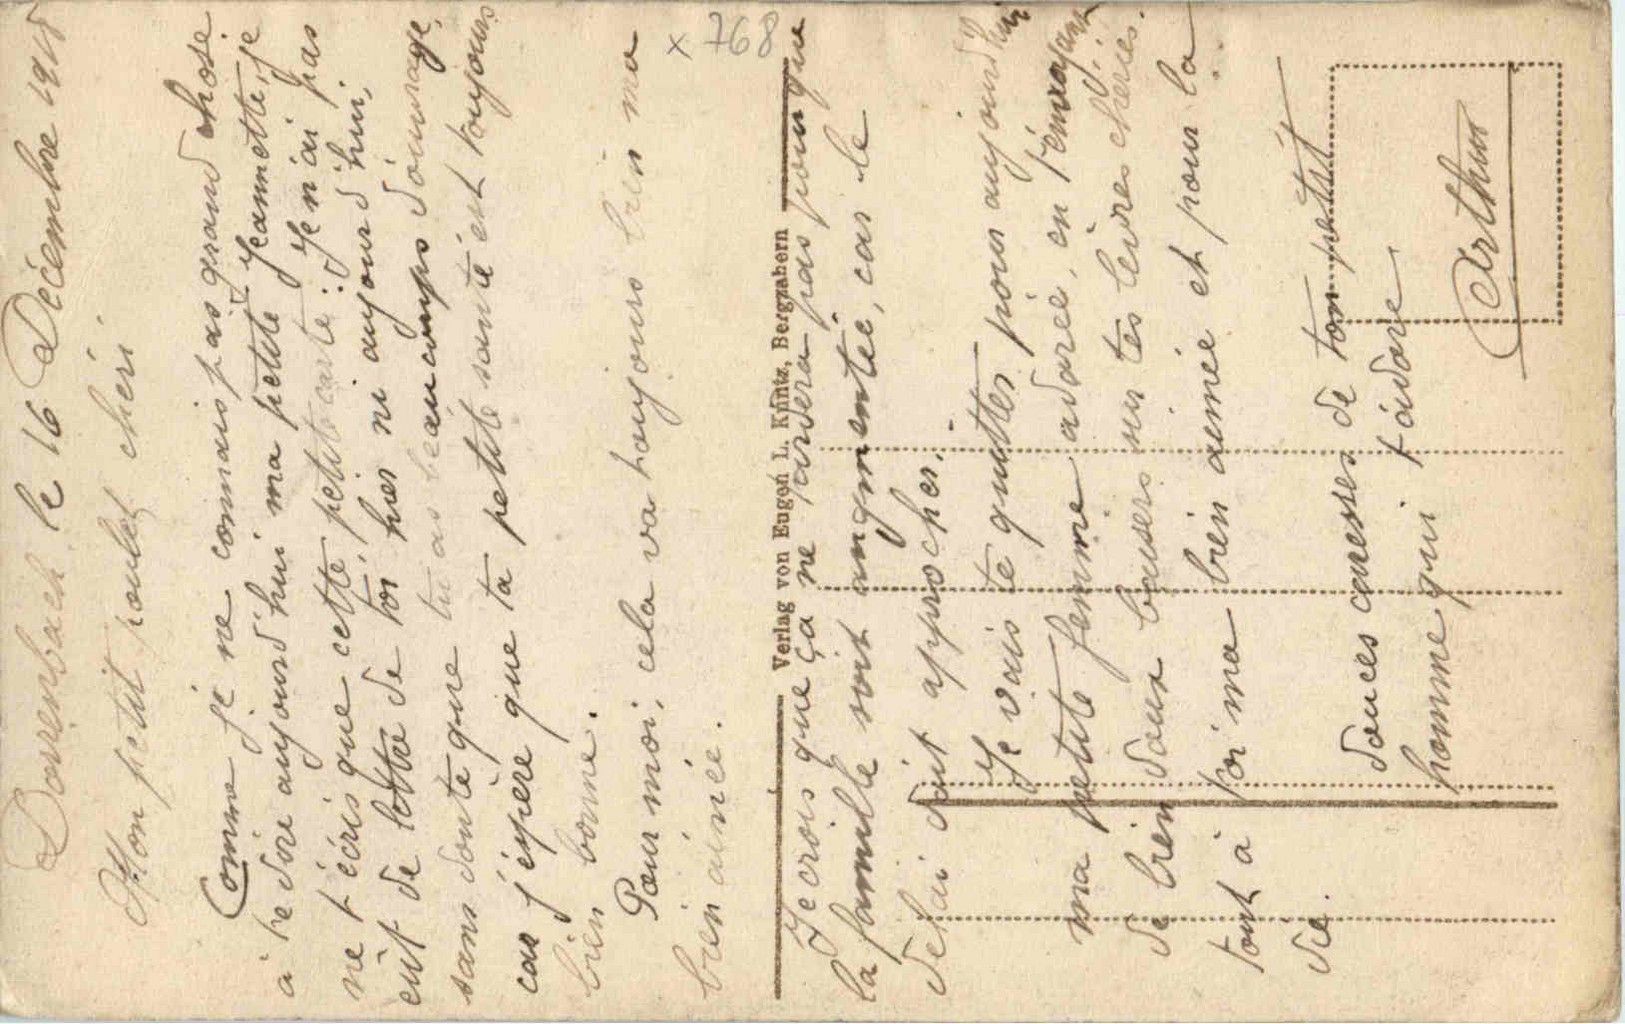 Dorrenbach le 16 Décembre 1918
Mon petit poulet chéri
Comme je ne connais pas grand chose
à te dire aujourd'hui ma petite Jeannette, je
ne t'écris que cette petite carte. Je n'ai pas
eut de lettre de toi hier ni aujourd'hui,
sans doute que tu as beaucoups d'ouvrage,
car j'éspère que ta petite santé est toujours
bien bonne.
Pour moi, cela va toujours bien ma
bien aimée.
× 768
Verlag von Eugen L. Kuntz, Bergzabern
Je crois que ça ne tardera pas pour que
la famille soit augmentée, car le
délai doit approcher.
Je vais te quitter pour aujourd'hui
ma petite femme adorée, en t'envoyant
de bien doux baisers sur tes lèvres chéries.
tout à toi ma bien aimée et pour la
vie.
douces caresses de ton petit
homme qui t'adore
Arthur